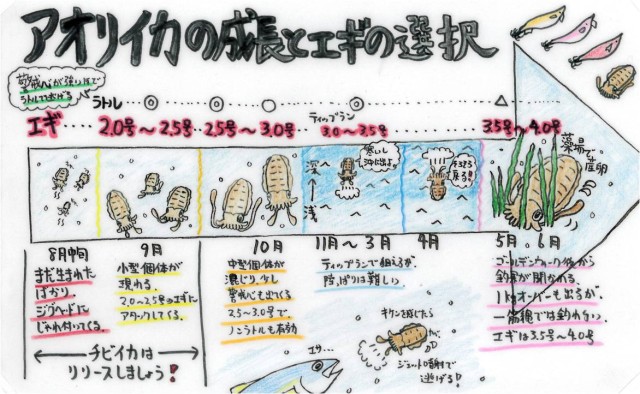 アオリイカの成長とエギの選択
警戒心が強いので
ラトルで逃げる
ラトル ◎ ◎ ○ ◎ △
エギ 2.0号〜2.5号 2.5号〜3.0号 ティップラン 3.0〜3.5号 3.5号〜4.0号
深
浅
寒いし
沖に出よう
そろそろ
戻る!!
藻場で
産卵
8月中旬
まだ生まれた
ばかり。
ジグヘッドに
じゃれ付いてくる。
9月
小型個体が
現れる。
2.0〜2.5号のエギに
アタックしてくる。
チビイカは
リリースしましょう!
10月
中型個体が
混じり、少し
警戒心も出てくる
2.5〜3.0号で
ノンラトルも有効
11月〜3月
ティップランで狙えるが、
陸っぱりは難しい
4月
5月、6月
ゴールデンウィーク後から
釣果が聞かれる。
1kgオーバーも出るが、
一筋縄では釣れない
エギは3.5号〜4.0号
エサ…
キケンを感じたら
ジェット噴射で
逃げる!